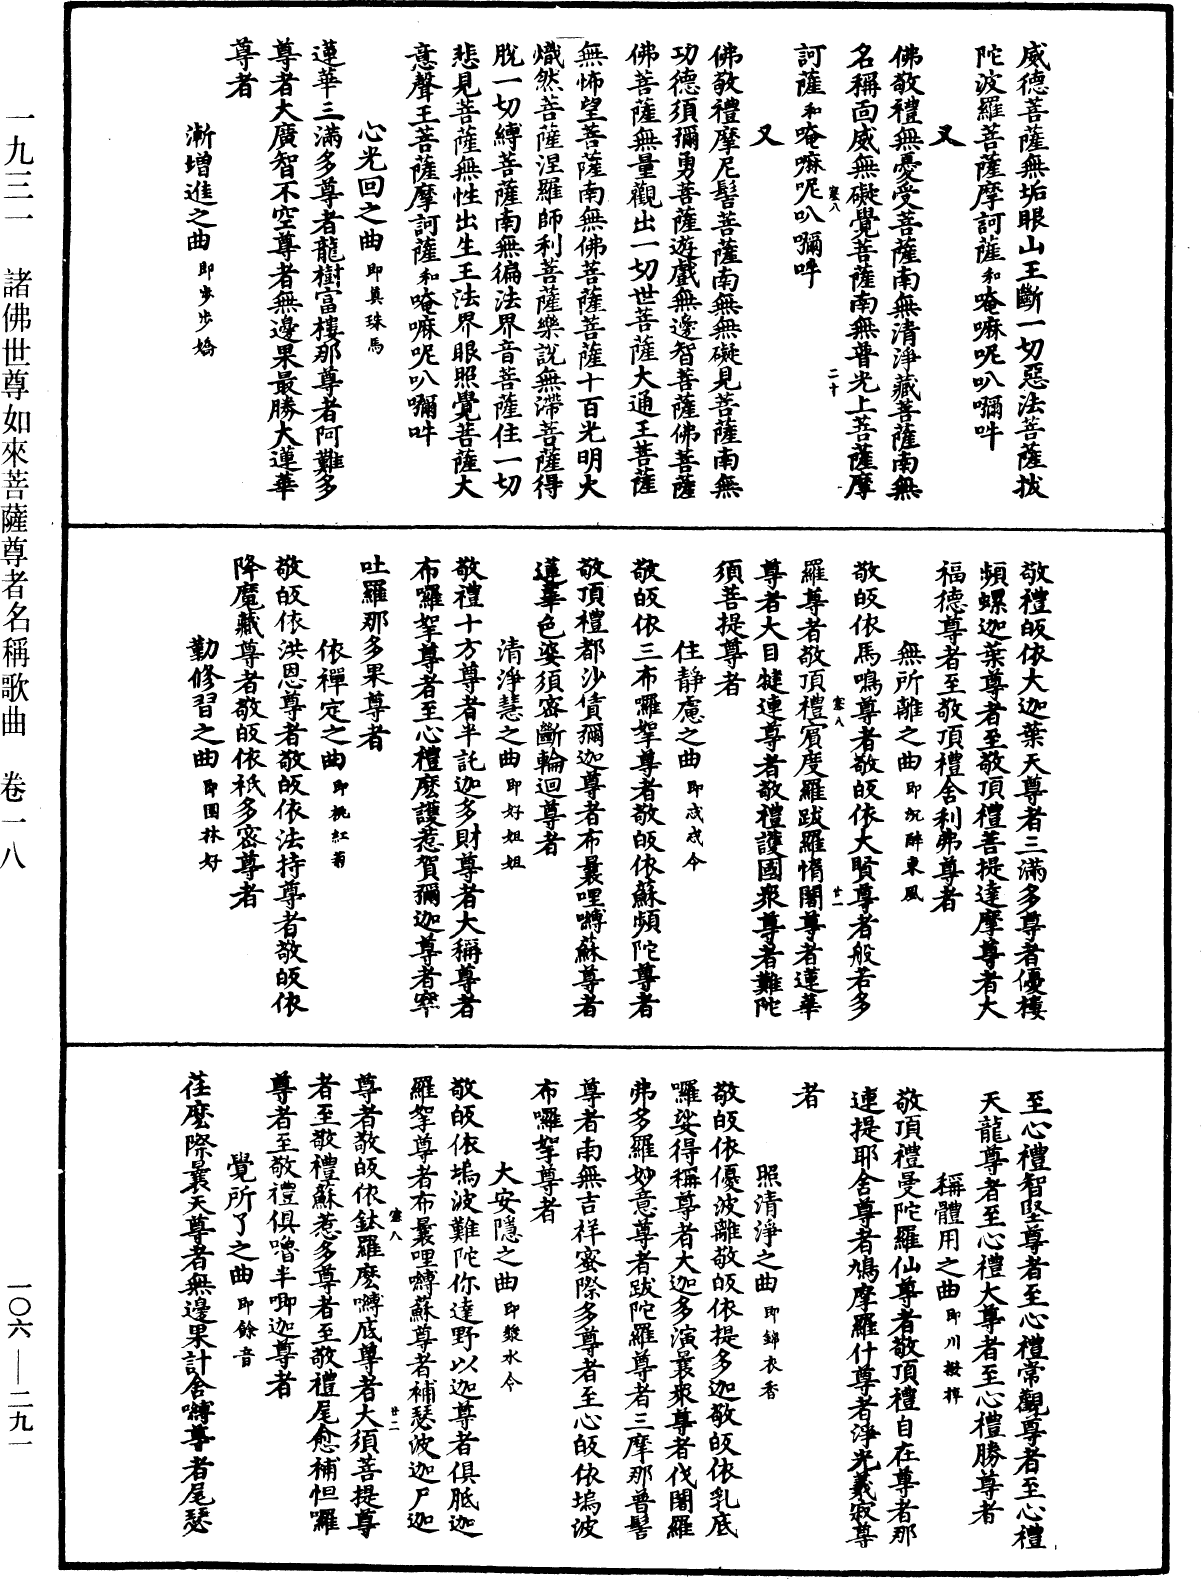 威德菩薩無垢眼山王斷一切惡法菩薩拔
陀波羅菩薩摩訶薩和唵嘛呢叭嚩吽
又
佛敬禮無憂受菩薩南無清淨藏菩薩南無
名稱面威無礙覺菩薩南無普光上菩薩摩
訶薩和唵嘛呢叭嚩吽
又
佛敬禮摩尼髻菩薩南無無礙見菩薩南無
功德須彌勇菩薩遊戲無邊智菩薩佛菩薩
佛菩薩無量觀出一切世菩薩大通王菩薩
無怖望菩薩南無佛菩薩菩薩十百光明大
熾然菩薩涅羅師利菩薩樂說無滯菩薩得
脫一切縛菩薩南無徧法界音菩薩住一切
悲見菩薩無性出生王法界眼照覺菩薩大
意聲王菩薩摩訶薩和唵嘛呢叭嚩吽
心光回之曲即真珠馬
蓮華三滿多尊者龍樹富樓那尊者阿難多
尊者大廣智不空尊者無邊果最勝大蓮華
尊者
漸增進之曲即步步嬌
敬禮皈依大迦葉天尊者三滿多尊者優樓
頻螺迦葉尊者至敬頂禮菩提達摩尊者大
福德尊者至敬頂禮舍利弗尊者
無所離之曲即沉醉東風
敬皈依馬鳴尊者敬皈依大賢尊者般若多
羅尊者敬頂禮賓度羅跋羅惰闍尊者蓮華
尊者大目犍連尊者敬禮護國衆尊者難陀
須菩提尊者
住靜慮之曲即忒忒令
敬皈依三布囉拏尊者敬皈依蘇頻陀尊者
敬頂禮都沙賃彌迦尊者布曩哩嚩蘇尊者
蓮華色婆須密斷輪迴尊者
清淨慧之曲即好姐姐
敬禮十方尊者半託迦多財尊者大稱尊者
布囉拏尊者至心禮麽護惹賀彌迦尊者窣
吐羅那多果尊者
依禪定之曲即桃紅菊
敬皈依洪恩尊者敬皈依法持尊者敬皈依
降魔藏尊者敬皈依祇多密尊者
勤修習之曲即園林好
至心禮智堅尊者至心禮常觀尊者至心禮
天龍尊者至心禮大尊者至心禮勝尊者
稱體用之曲即川撥棹
敬頂禮曼陀羅仙尊者敬頂禮自在尊者那
連提耶舍尊者鳩摩羅什尊者淨光義寂尊
者
照清淨之曲即錦衣香
敬皈依優波離敬皈依提多迦敬皈依乳底
囉娑得稱尊者大迦多演曩衆尊者伐闍羅
弗多羅妙意尊者跋陀羅尊者三摩那普髻
尊者南無吉祥蜜際多尊者至心皈依塢波
布囉拏尊者
大安隱之曲即漿水令
敬皈依塢波難陀你達野以迦尊者俱胝迦
羅拏尊者布曩哩嚩蘇尊者補瑟波迦尸迦
尊者敬皈依鈦羅麽嚩底尊者大須菩提尊
者至敬禮蘇惹多尊者至敬禮尾愈補怛囉
尊者至敬禮俱嚕半唧迦尊者
覺所了之曲即餘音
荏麽際曩天尊者無邊果計舍嚩尊者尾瑟
密八
二十
密八
廿一
密八
廿二
一九三一　諸佛世尊如來菩薩尊者名稱歌曲　卷一八
一〇六——二九一